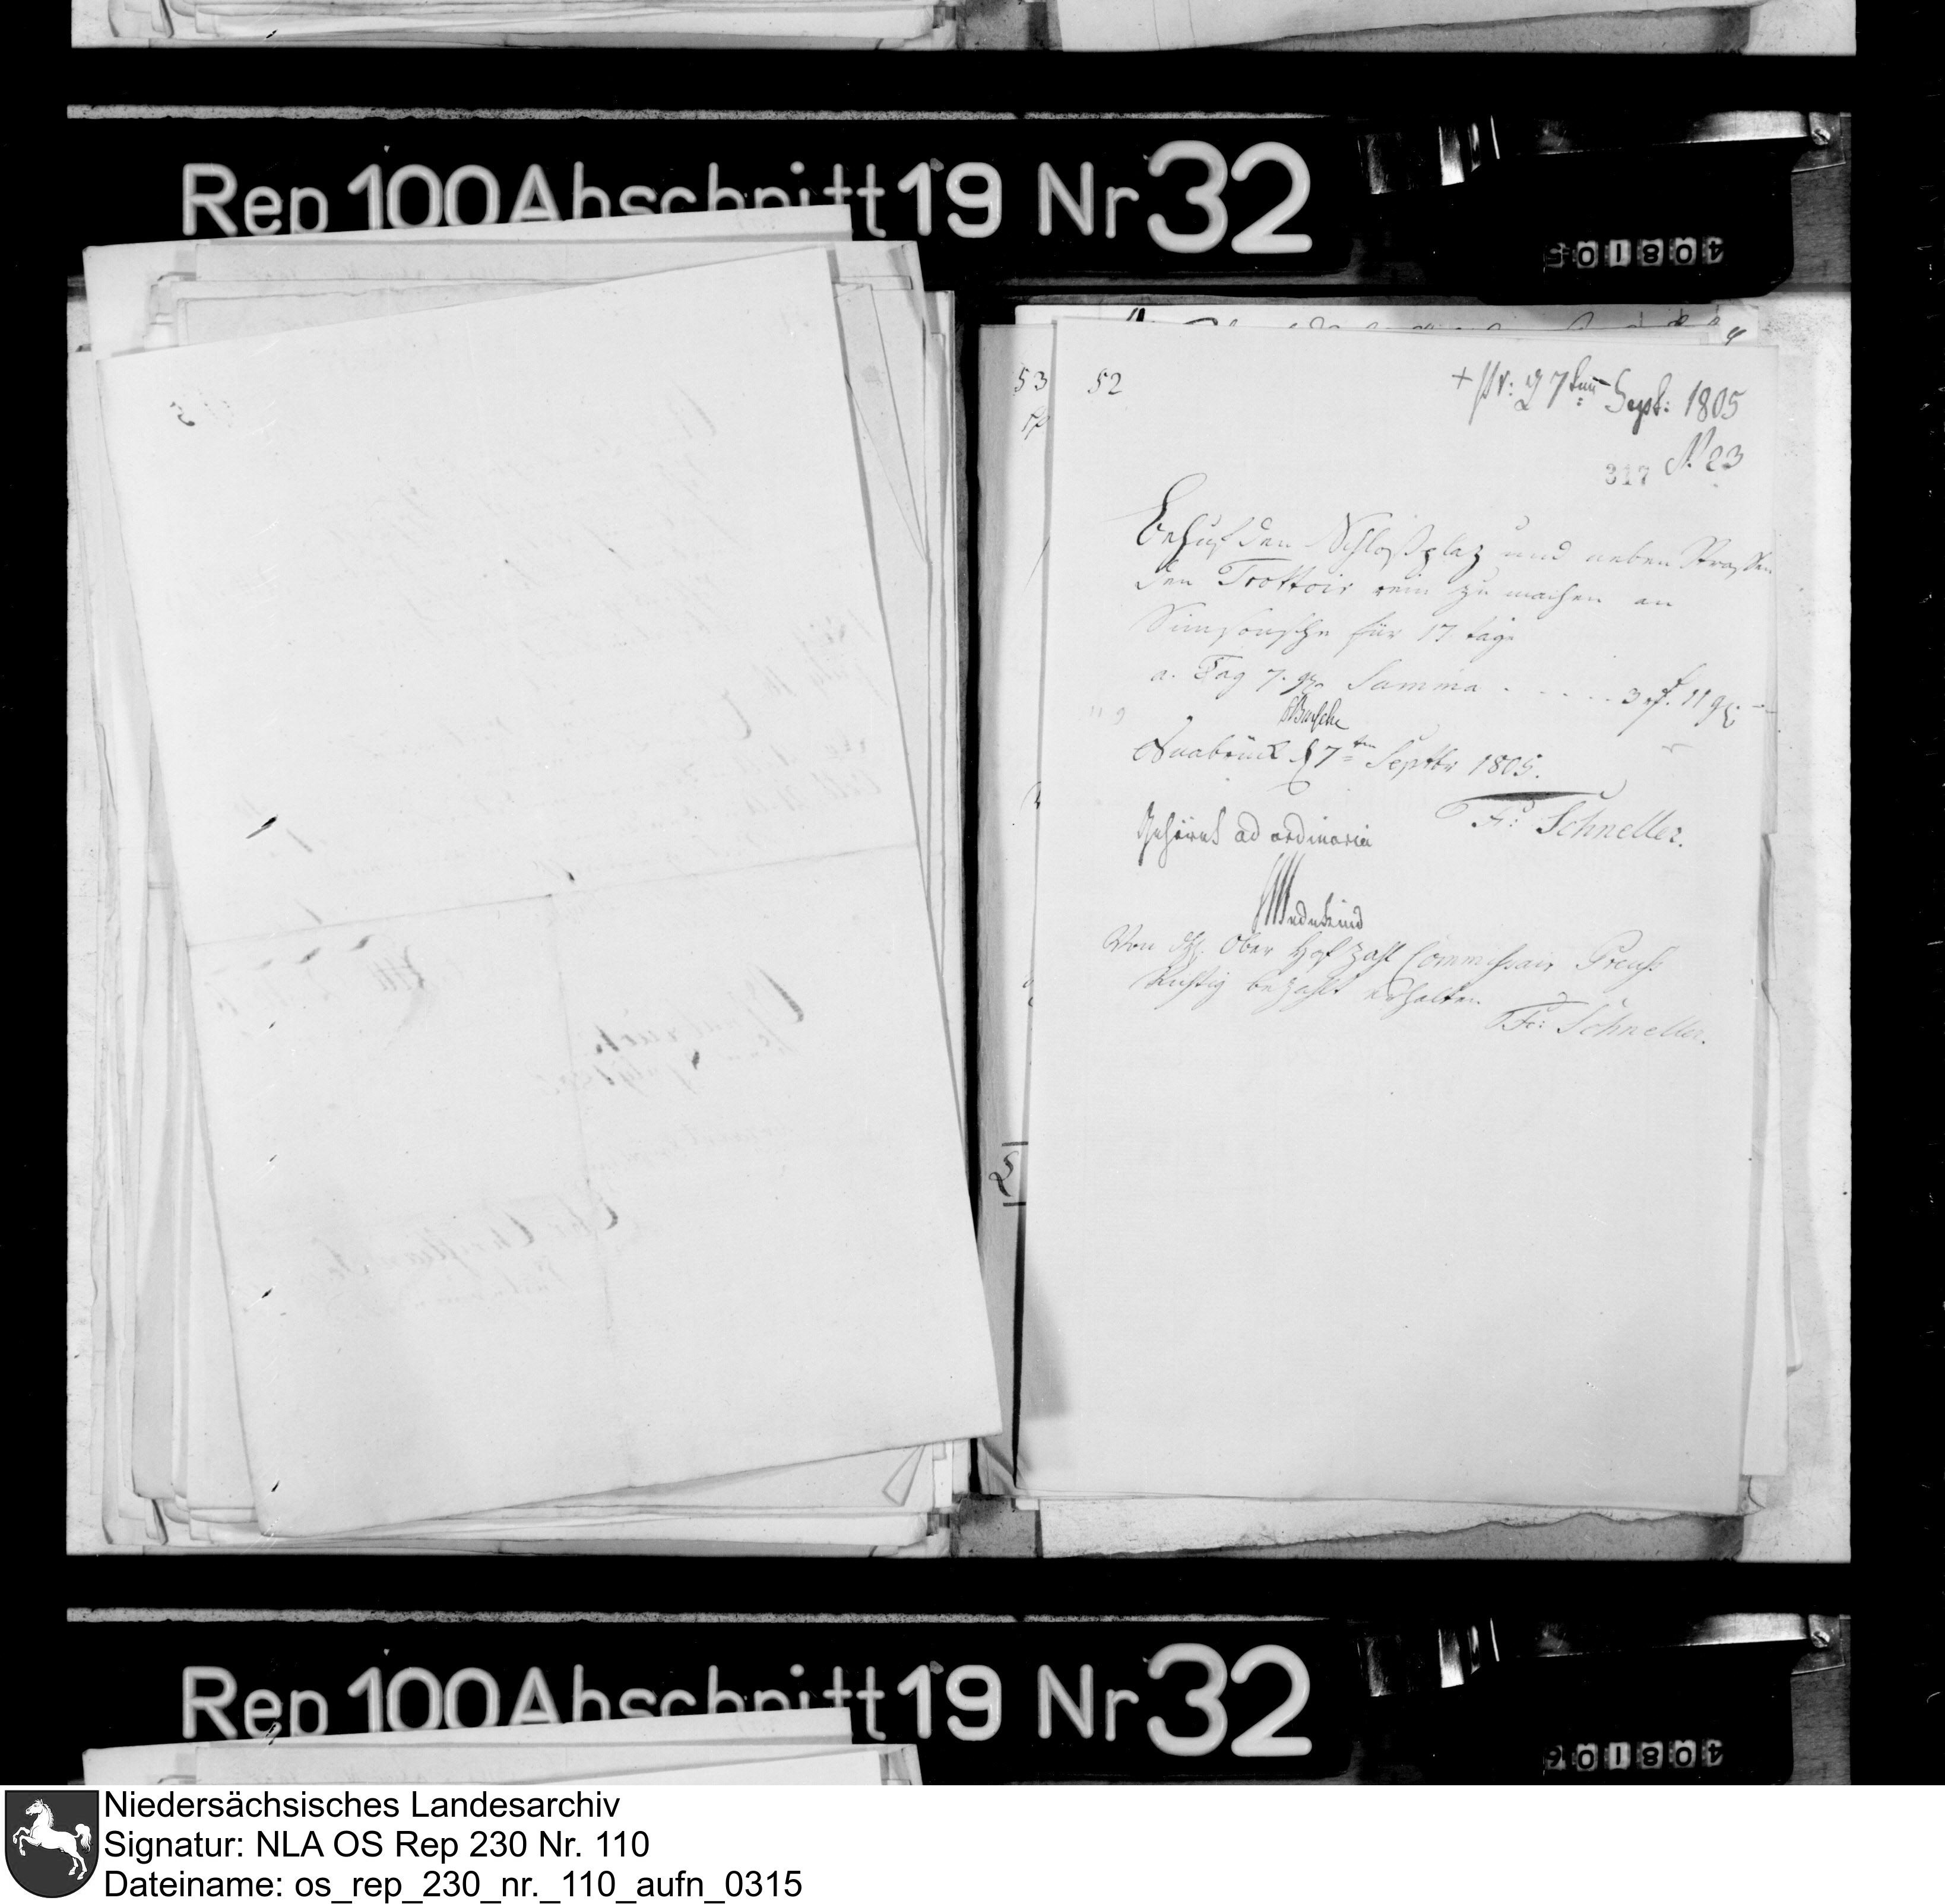 Rep 100 Abschnitt 19 Nr 32
408105
53
52
+ pr: 27ten Sept: 1805
N. 23
317
Behuf den Schloßplatz und neben Strassen
den Trottoir rein zu machen an
für 17 tage
a. Tag 7. gr Summa . . . . . 3 rf. 11 gr. —
Busche
Osnabrück d 7ten Septbr 1805.
Fr: Schneller.
Gehöret ad ordinaria
Wedekind
Von dH. Ober Hof Zahl Commissair Preuss
Richtig bezahlt erhalten
Fr: Schneller.
Rep 100 Abschnitt 19 Nr 32
408106
Niedersächsisches Landesarchiv
Signatur: NLA OS Rep 230 Nr. 110
Dateiname: os_rep_230_nr._110_aufn_0315